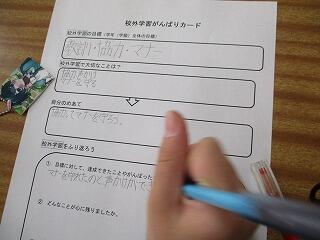 校外学習がんばりカード
校外学習の目標（学年（学級）全体の目標）
協力・マナー
校外学習で大切なことは？
マナーを守る
自分のめあて
協力してマナーを守ろう。
校外学習をふり返ろう
① 目標に対して、達成できたことやがんばった
マナーを守れたのと声かけができ
② どんなことが心に残りましたか。